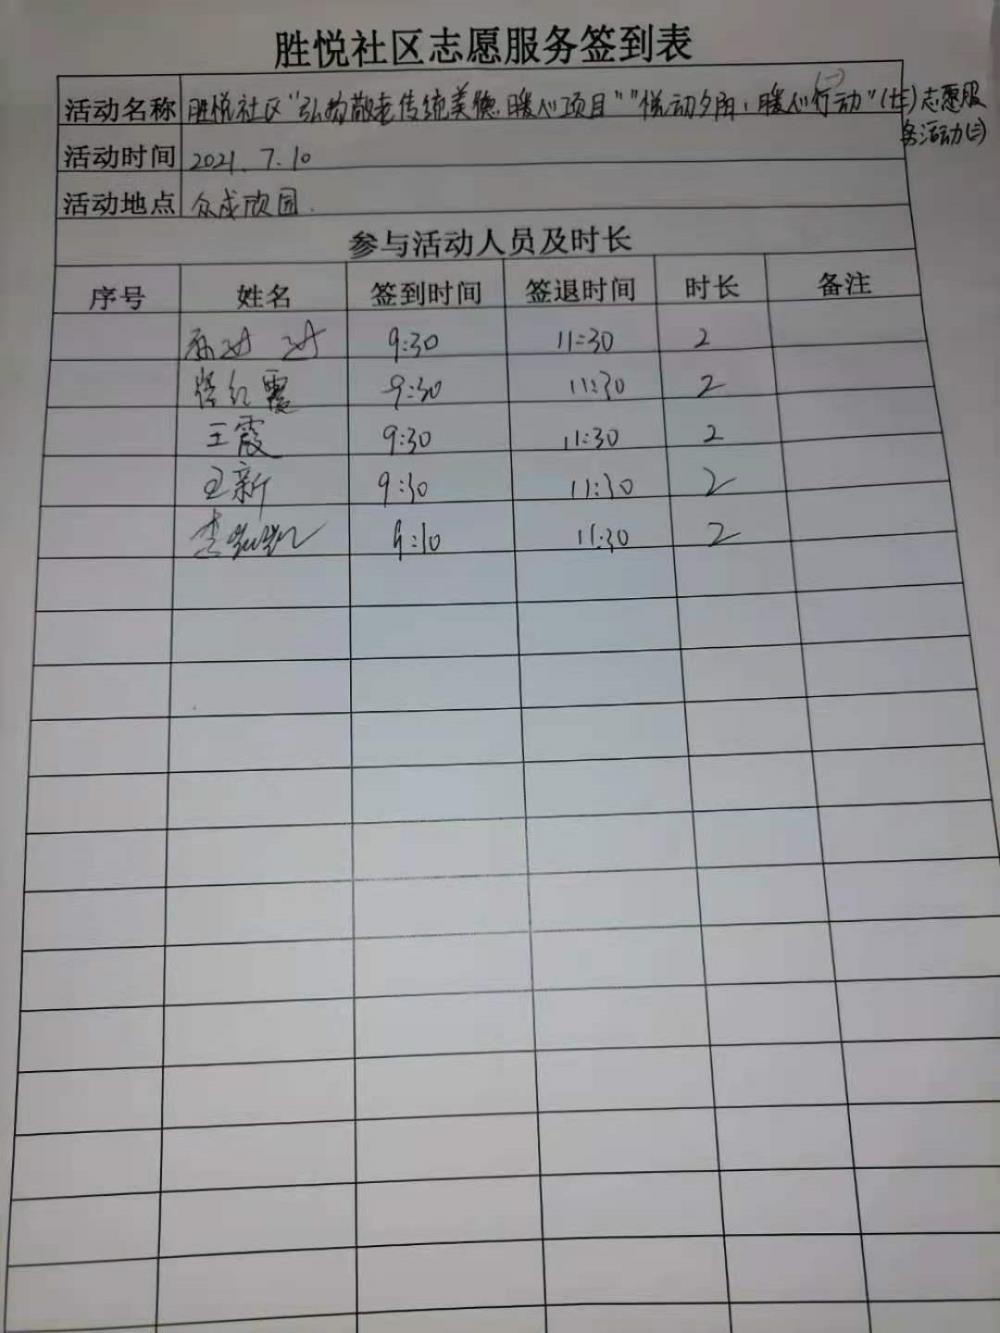 胜悦社区志愿服务签到表
活动名称 胜悦社区“弘扬敬老传统美德.暖心项目”“悦动夕阳,暖心行动”(一)(廿)志愿服
务活动(三)
活动时间 2021.7.10
活动地点 众成颐园.
参与活动人员及时长
序号 姓名 签到时间 签退时间 时长 备注
9:30 11:30 2
红霞 9:30 11:30 2
王霞 9:30 11:30 2
王新 9:30 11:30 2
李 9:30 11:30 2